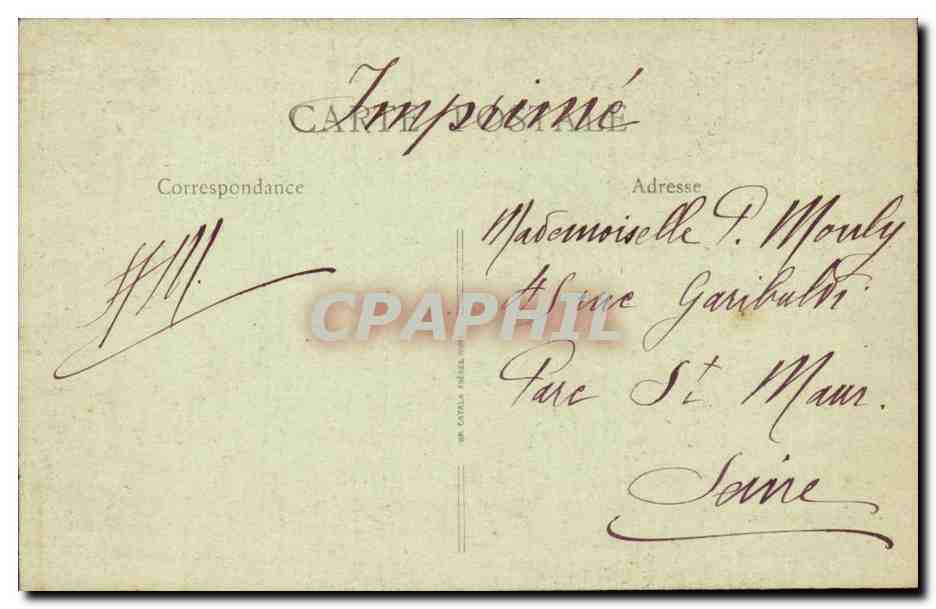 Imprimé
CARTE POSTALE
Correspondance
Adresse
HM.
Mademoiselle P. Mouly
rue Garibaldi
Parc St Maur.
Seine
CPAPHIL
IMP. CATALA FRÈRES, PARIS